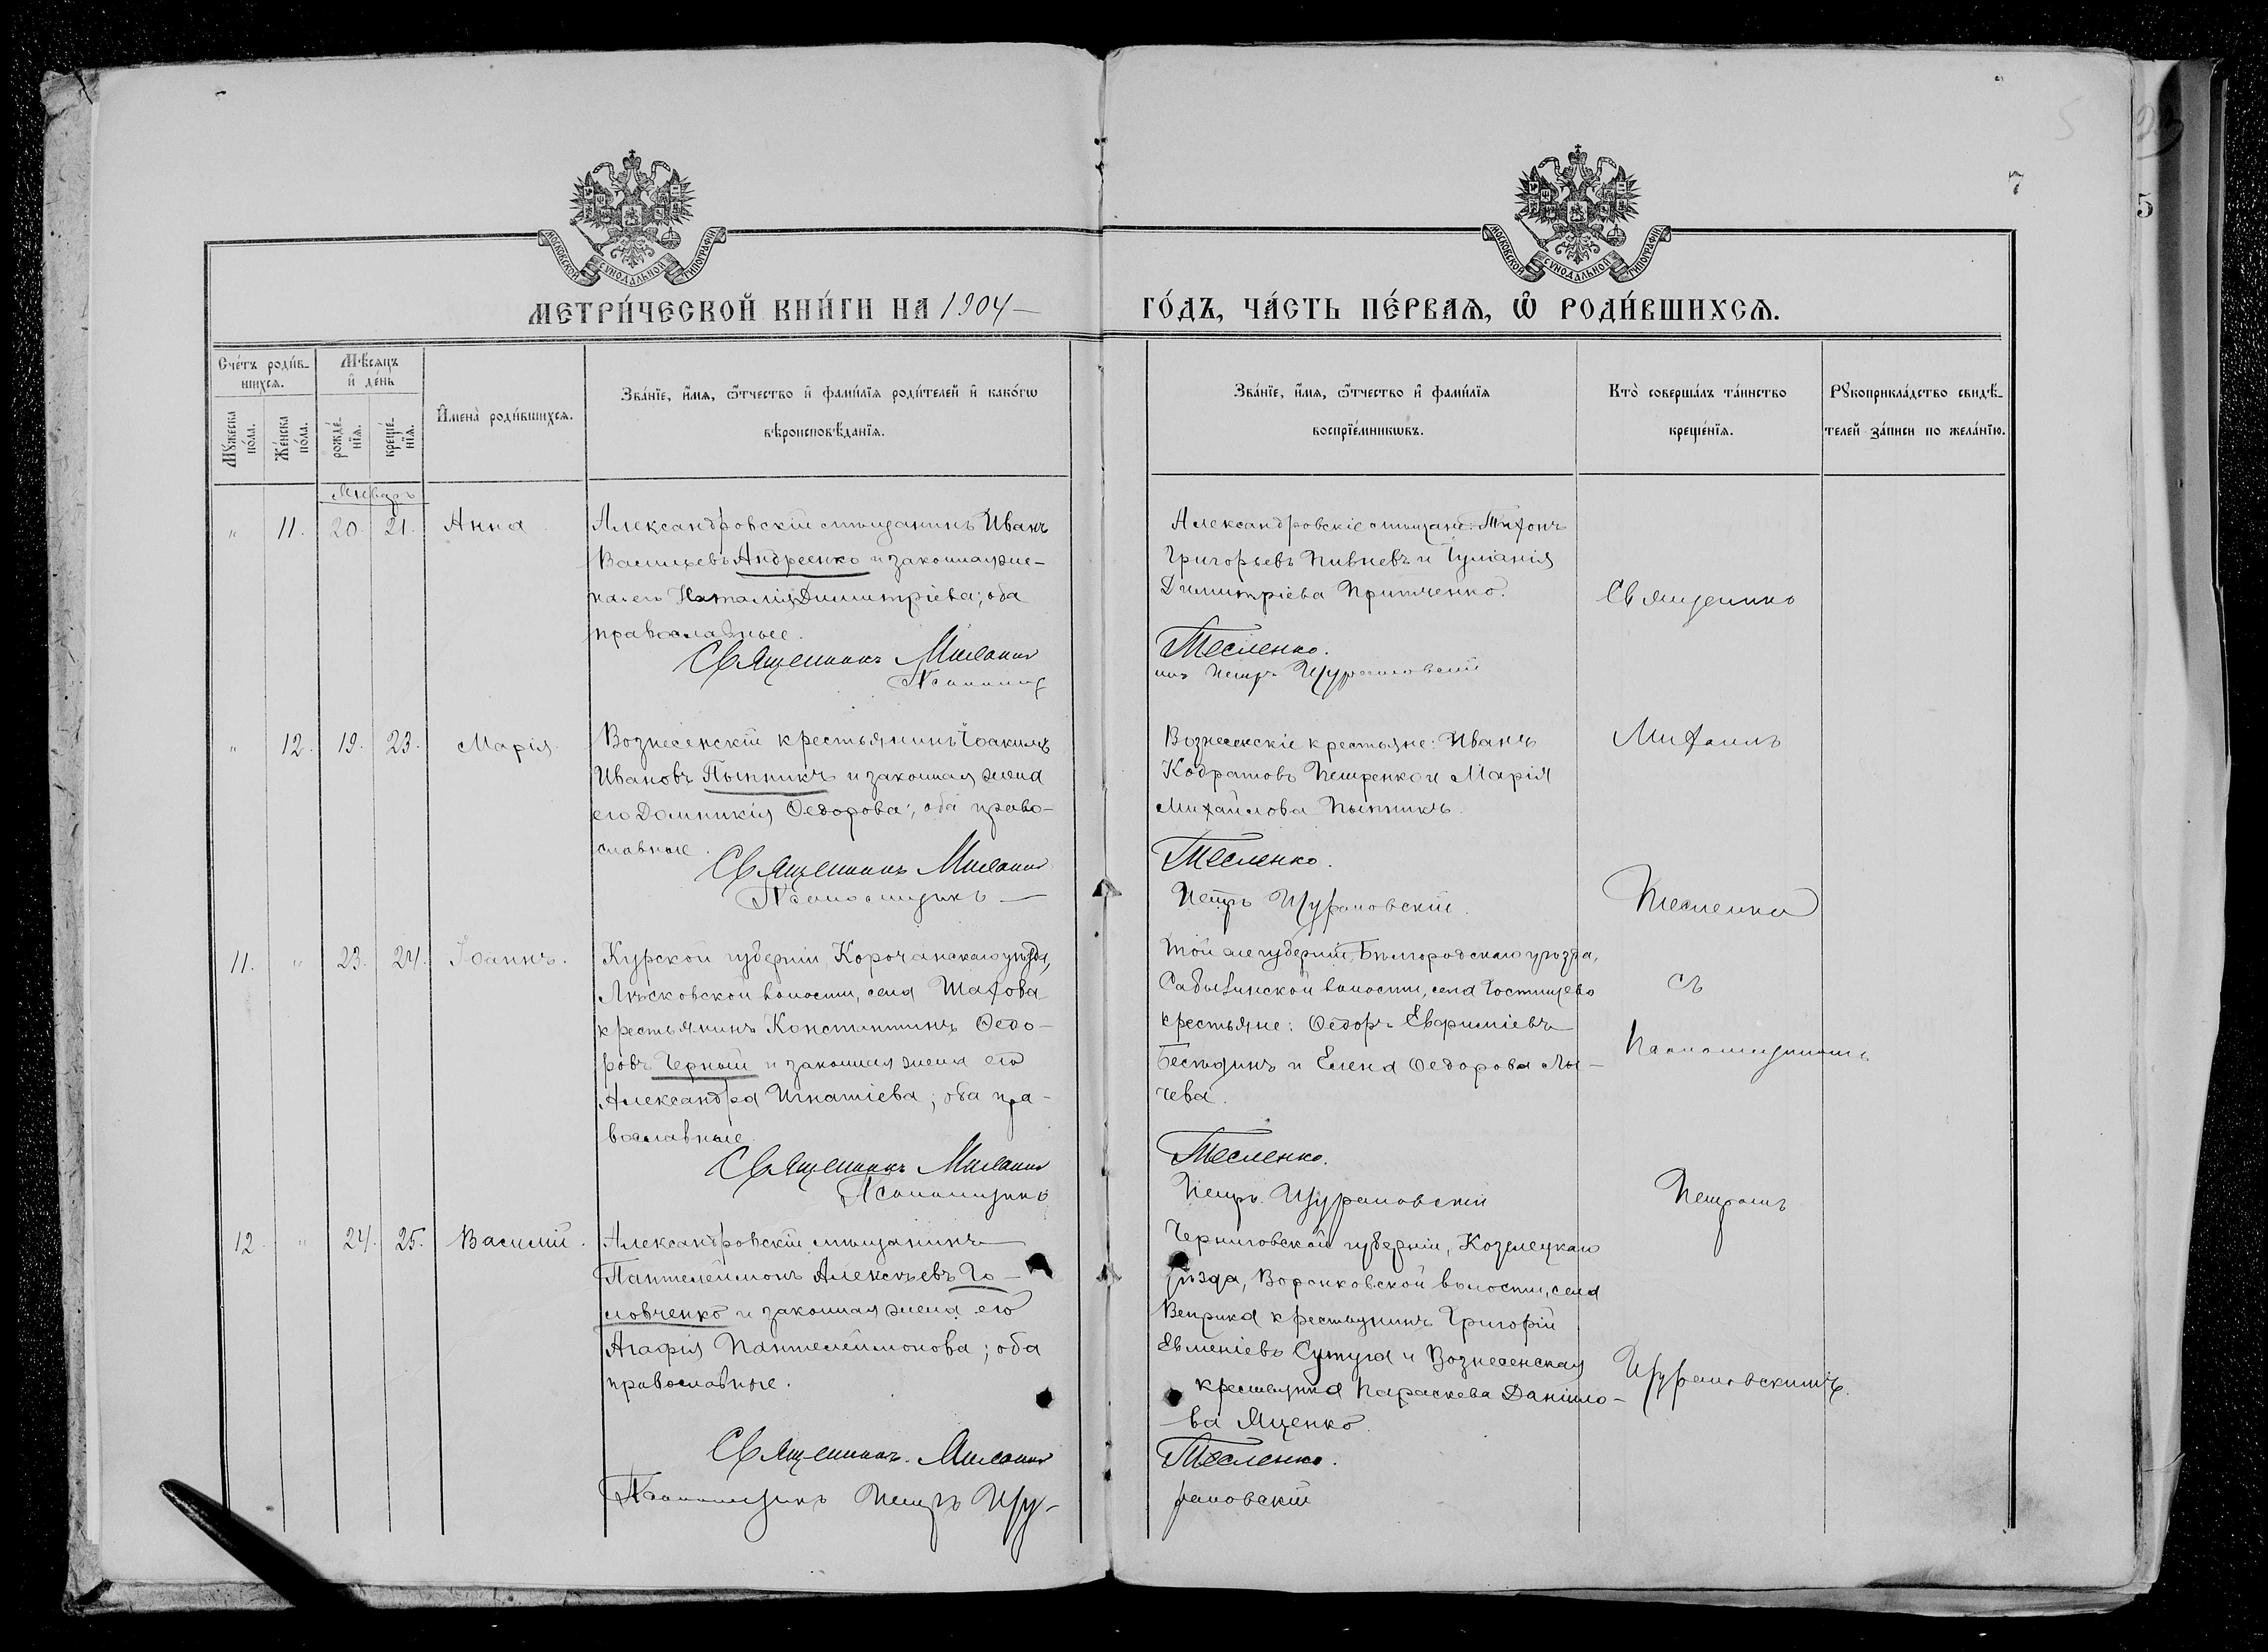 7
5
МОСКОВСКОЙ СУНОДАЛЬНОЙ ТИПОГРАФІИ
МОСКОВСКОЙ СУНОДАЛЬНОЙ ТИПОГРАФІИ
МЕТРИ́ЧЕСКОЙ КНИ́ГИ НА 1904 —
ГО́ДЪ, ЧА́СТЬ ПЕ́РВАѦ, Ѽ РОДИ́ВШИХСѦ.
Сче́тъ роди́в-
шихсѧ.
Мѣ́сѧцъ
и҆ де́нь
Мꙋ́жеска
по́ла.
Же́нска
по́ла.
рожде́-
нїѧ.
креще́-
нїѧ.
И҆мена̀ роди́вшихсѧ.
Зва́нїе, и҆́мѧ, ѻ҆́тчество и҆ фами́лїѧ роди́телей и҆ како́гѡ
вѣроисповѣ́данїѧ.
Зва́нїе, и҆́мѧ, ѻ҆́тчество и҆ фами́лїѧ
воспрїе́мникѡвъ.
Кто̀ соверша́лъ та́инство
креще́нїѧ.
Рꙋкоприкла́дство свидѣ́-
телей за́писи по жела́нїю.
Январь
" 11. 20. 21. Анна
Александровскій мѣщанинъ Иванъ
Васильевъ Андреенко и законная же-
на его Наталія Димитріева; оба
православные.
Священникъ Михаилъ
Псаломщ
Александровскіе мѣщане: Тихонъ
Григорьевъ Пивневъ и Іуліанія
Димитріева Притченко.
Тесленко.
икъ Петръ Щурановскій
Священико
" 12. 19. 23. Марія.
Вознесенскій крестьянинъ Іоакимъ
Ивановъ Пыпникъ и законная жена
его Домникія Ѳедорова; оба право-
славные.
Священникъ Михаилъ
Псаломщикъ —
Вознесенскіе крестьяне: Иванъ
Кодратовъ Петренко и Марія
Михайлова Пыпникъ.
Тесленко.
Петръ Щурановскій.
Михаилъ
Тесленко
11. " 23. 24. Іоаннъ.
Курской губерніи, Корочанскаго уѣзда,
Лѣсковской волости, села Шахова
крестьянинъ Константинъ Ѳедо-
ровъ Черный и законная жена его
Александра Игнатіева; оба пра-
вославные
Священникъ Михаилъ
Псаломщикъ
Той же губерніи, Бѣлгородскаго уѣзда,
Сабынинской волости, села Гостищево
крестьяне: Ѳедоръ Евфиміевъ
Бесѣдинъ и Елена Ѳедорова Лы-
чева.
Тесленко.
Петръ Щурановскій
съ
Псаломщикомъ
Петромъ
12. " 24. 25. Василій.
Александровскій мѣщанинъ
Пантелеймонъ Алексѣевъ Го-
ловченко и законная жена его
Агафія Пантелеймонова; оба
православные.
Священникъ Михаилъ
Псаломщикъ Петръ Щу-
Черниговской губерніи, Козелецкаго
уѣзда, Воронковской волости, села
Веприка крестьянинъ Григорій
Евменіевъ Сутуга и Вознесенская
крестьянка Параскева Даніило-
ва Яценко
Тесленко.
рановскій
Щурановскимъ.